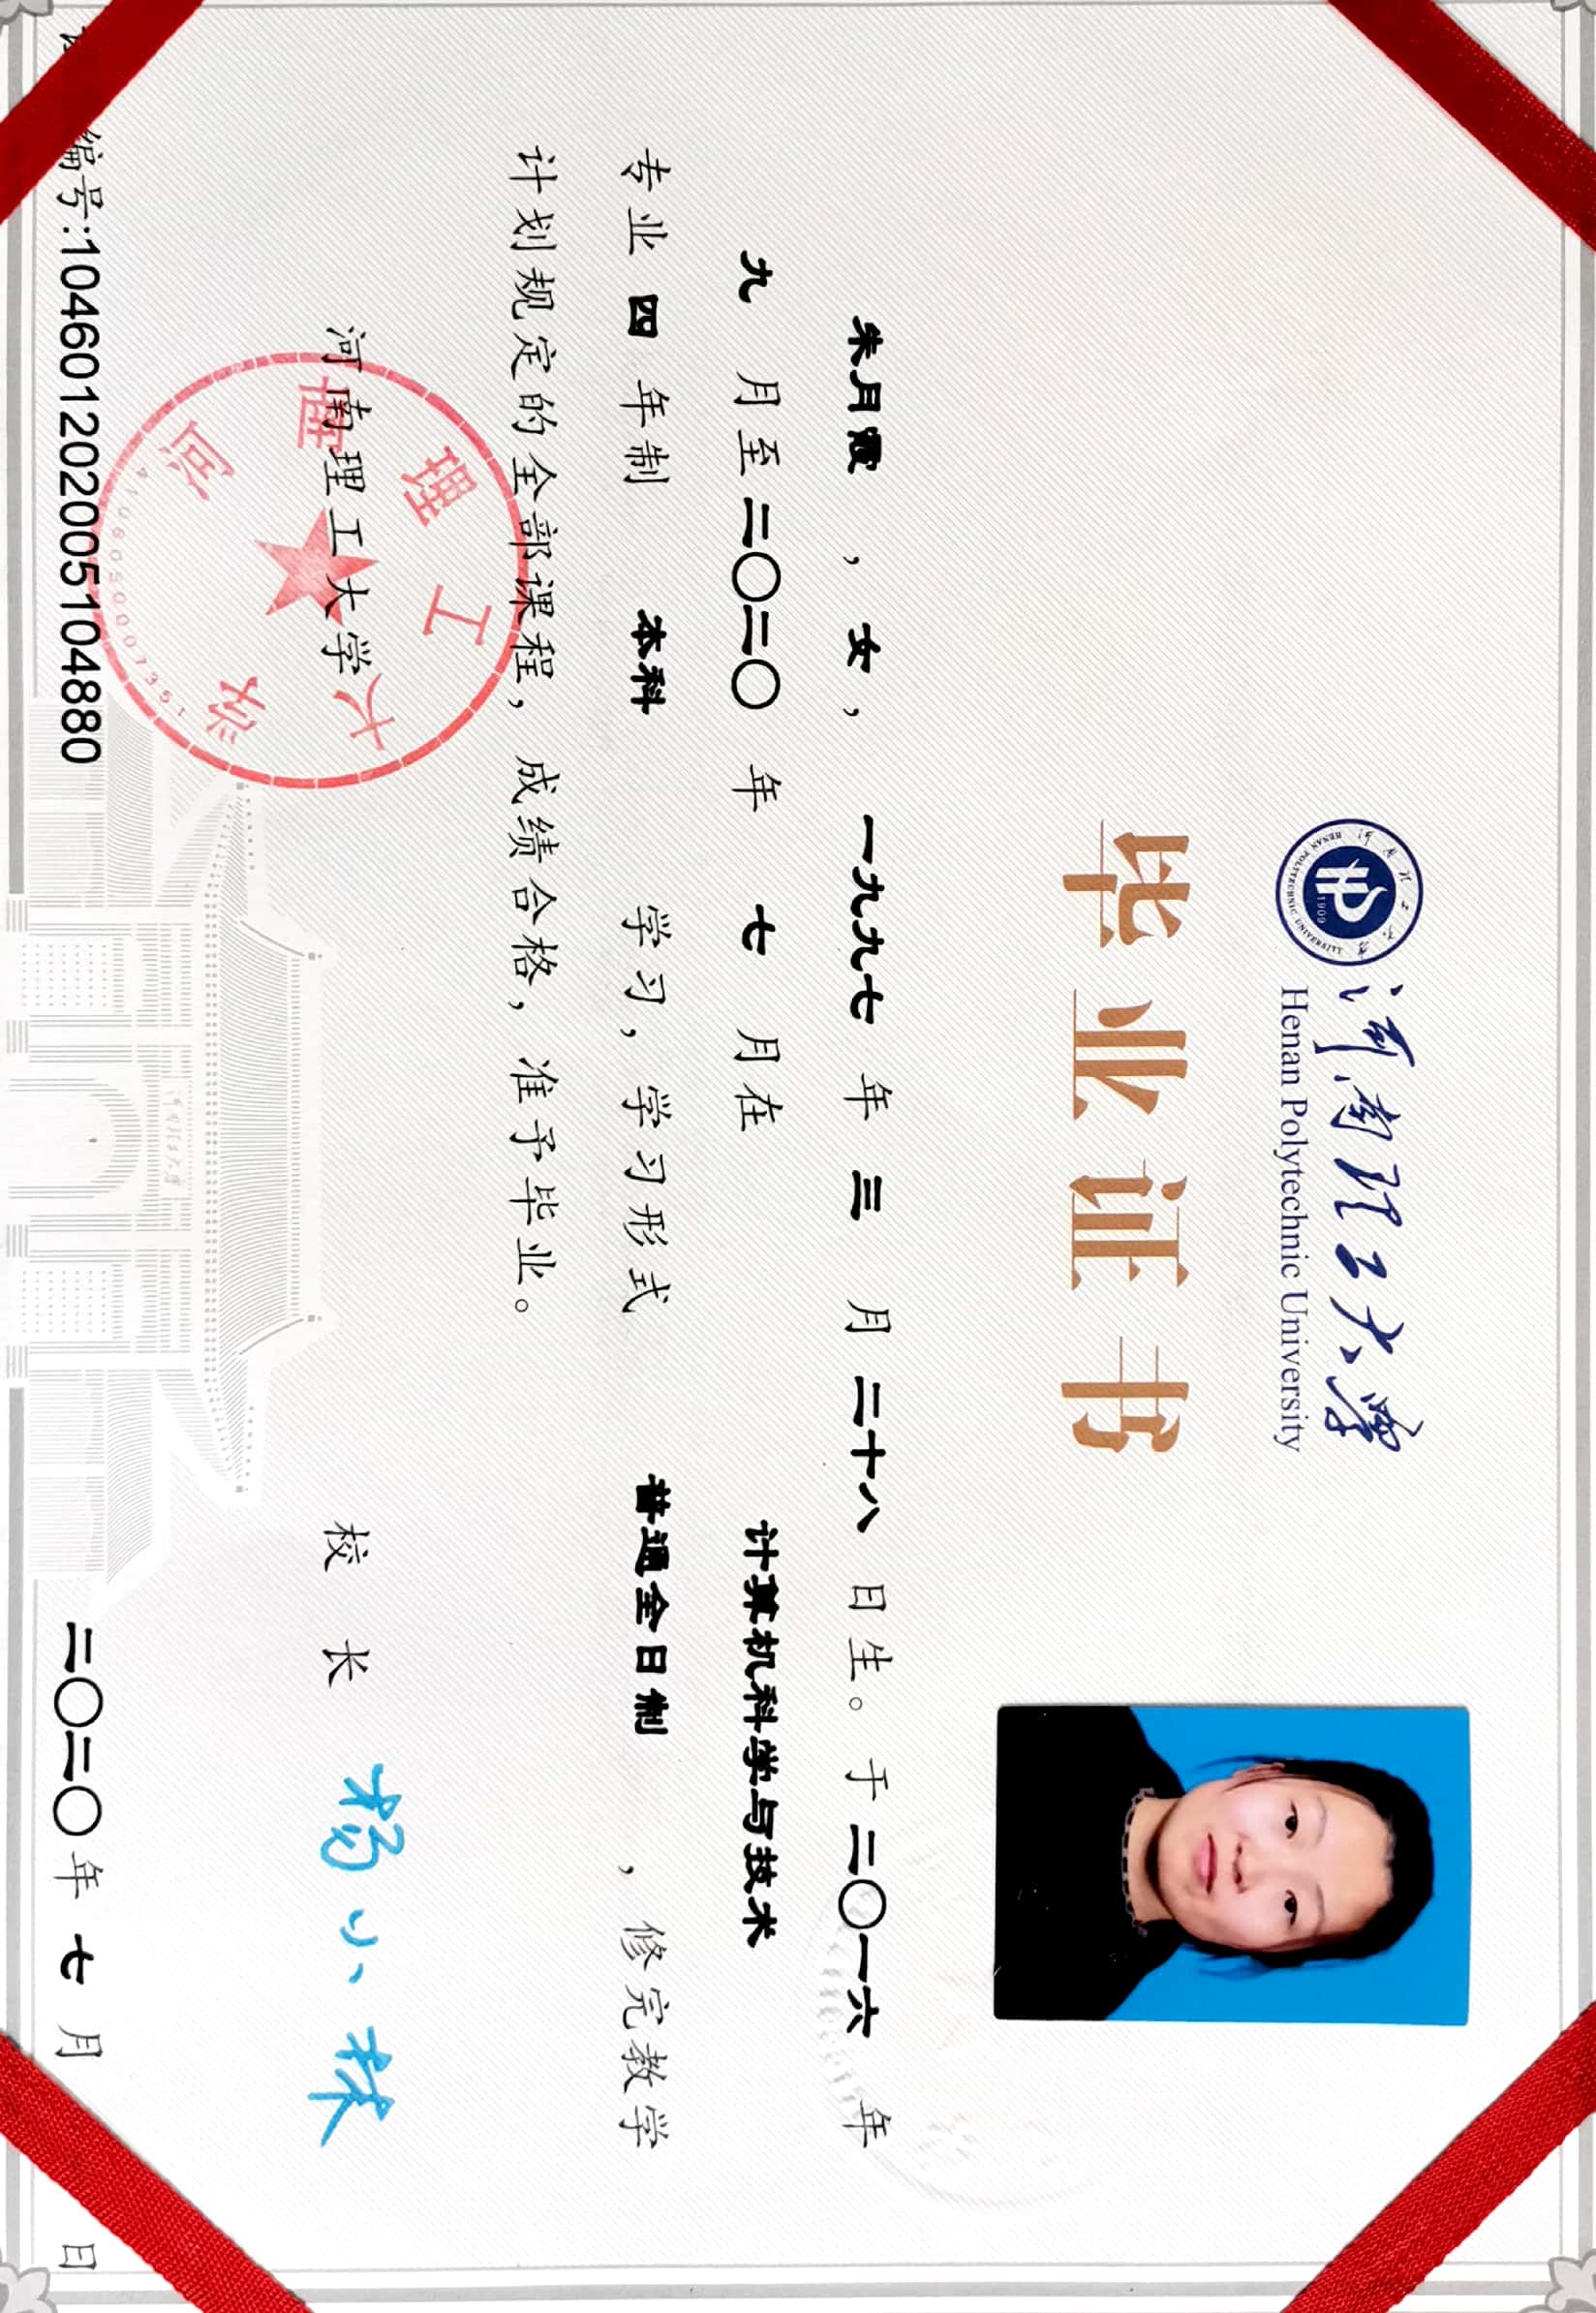 河南理工大学
Henan Polytechnic University
毕业证书
朱月霞 ，女， 一九九七 年 三 月 二十八 日生。于 二〇一六 年
九 月至 二〇二〇 年 七 月在 计算机科学与技术
专业 四 年制 本科 学习，学习形式 普通全日制 ，修完教学
计划规定的全部课程，成绩合格，准予毕业。
河南理工大学 校 长 杨小林
河南理工大学
4108050007351
编号:104601202005104880 二〇二〇年 七 月 日
河南理工大学
HENAN POLYTECHNIC UNIVERSITY
1909